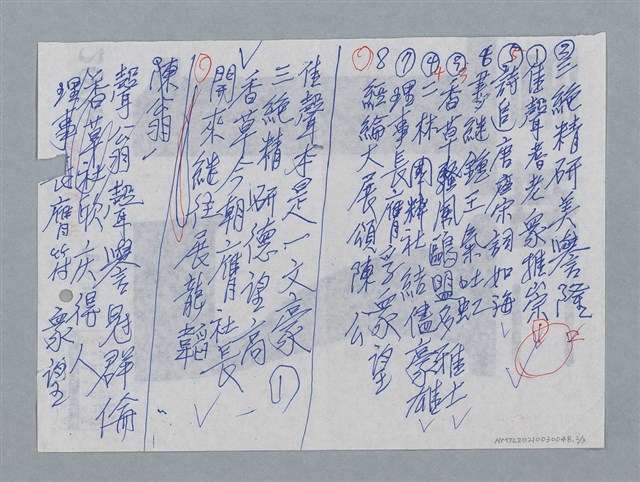 ②三絕精研美譽隆
①佳聲耆老眾推崇
⑤詩追唐盛宋詞如海
6書繼鍾王氣吐虹
③香草騷風鷗盟多雅士
④二林國粹社結儘豪雄
⑦理事長膺孚眾望
8經綸大展頌陳公
佳聲本是一文豪①
三絕精研德望高
香草今朝膺社長
開來繼往展龍韜
陳翁
聲翁聲譽冠群倫
香草社欣慶得人
理事長膺符眾望
NMTL20210030048 2/3